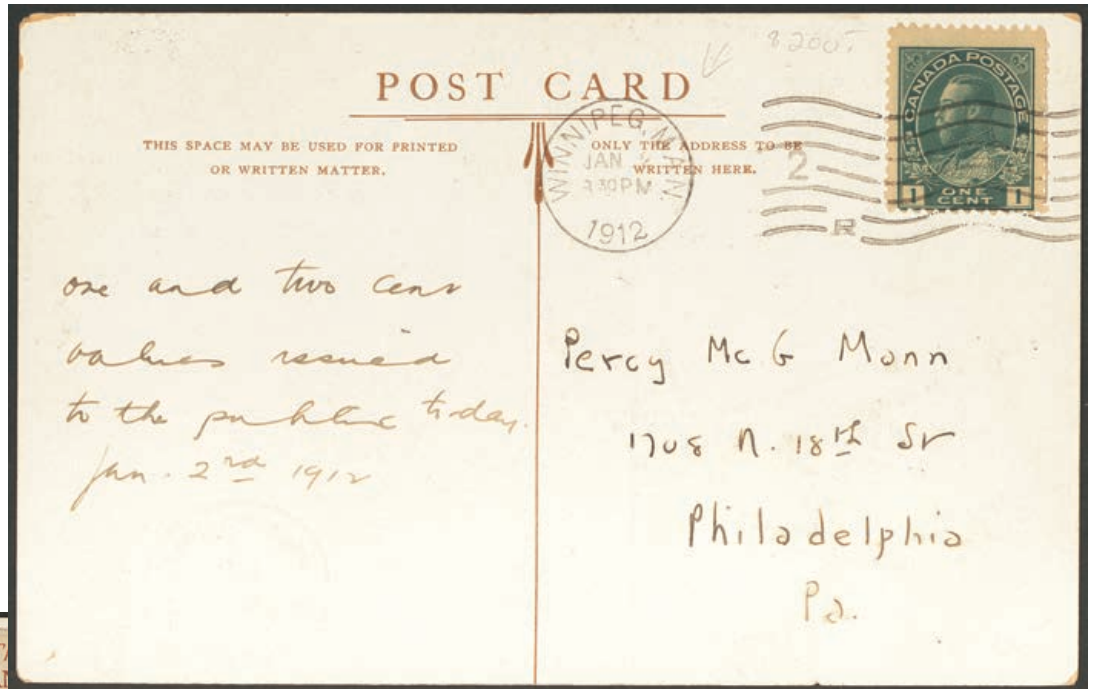 8200.
POST CARD
THIS SPACE MAY BE USED FOR PRINTED
OR WRITTEN MATTER.
ONLY THE ADDRESS TO BE
WRITTEN HERE.
WINNIPEG, MAN.
JAN 2
30 PM
1912
2
R
CANADA POSTAGE
1 ONE CENT 1
one and two cent
values issued
to the public today.
Jan. 2nd 1912
Percy Mc G Mann
1708 N. 18th St
Philadelphia
Pa.